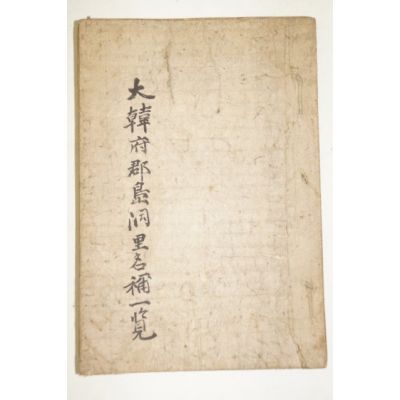 大韓府郡島洞里名補一覽